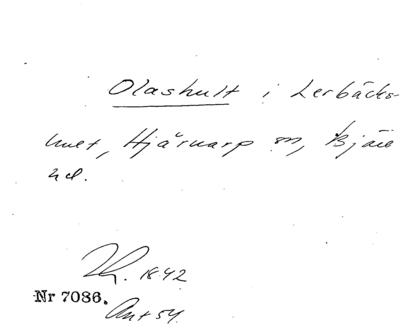 Olashult i Lerbäcks-
hult, Hjärnarp sn, Bjäre
hd.
1842
Nr 7086.
Ant 54.